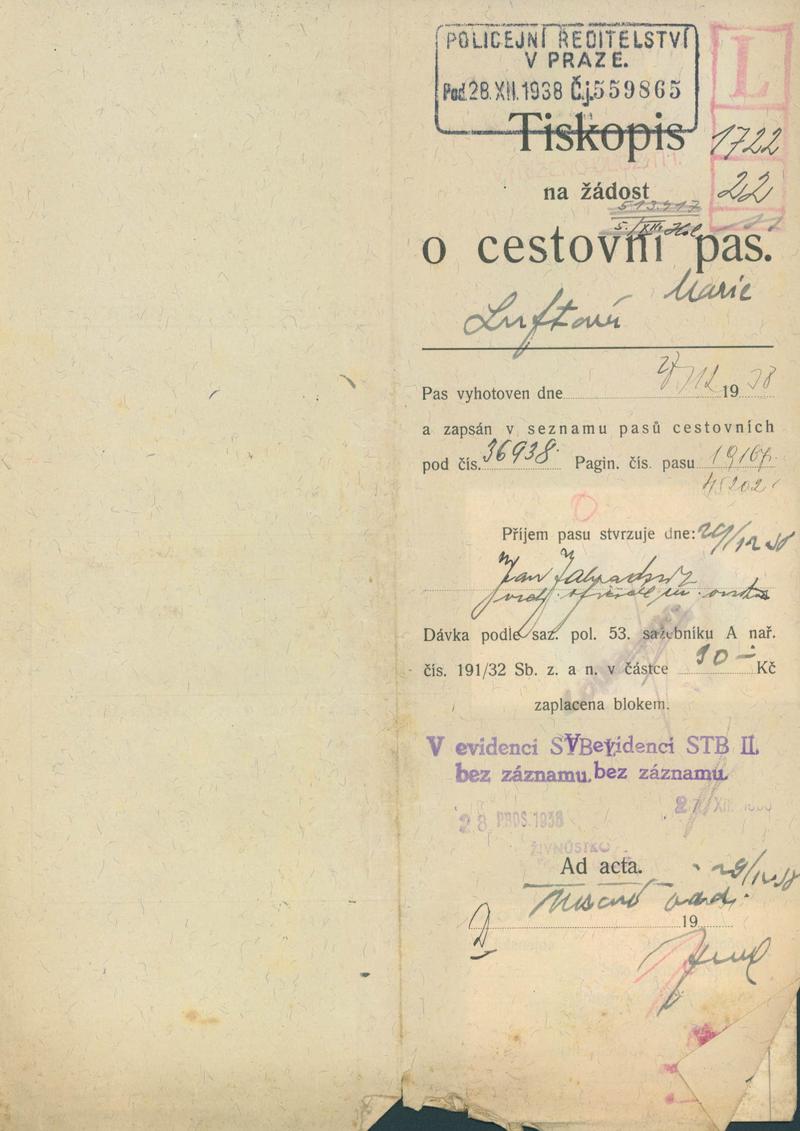 POLICEJNÍ ŘEDITELSTVÍ
V PRAZE.
Pod. 28. XII. 1938 Č.j. 559865
L
Tiskopis
1722
na žádost
22
o cestovní pas.
Marie
Luftová
Pas vyhotoven dne 19 38
a zapsán v seznamu pasů cestovních
pod čís. 36938. Pagin. čís. pasu
Příjem pasu stvrzuje dne: 29/12 38
Jan
Dávka podle saz. pol. 53. sazebníku A nař.
čís. 191/32 Sb. z. a n. v částce 10 – Kč
zaplacena blokem.
V evidenci STB V evidenci STB II.
bez záznamu. bez záznamu.
28. PROS. 1938 27. XII.
ŽIVNOSTKO
Ad acta. 29/12 38
19